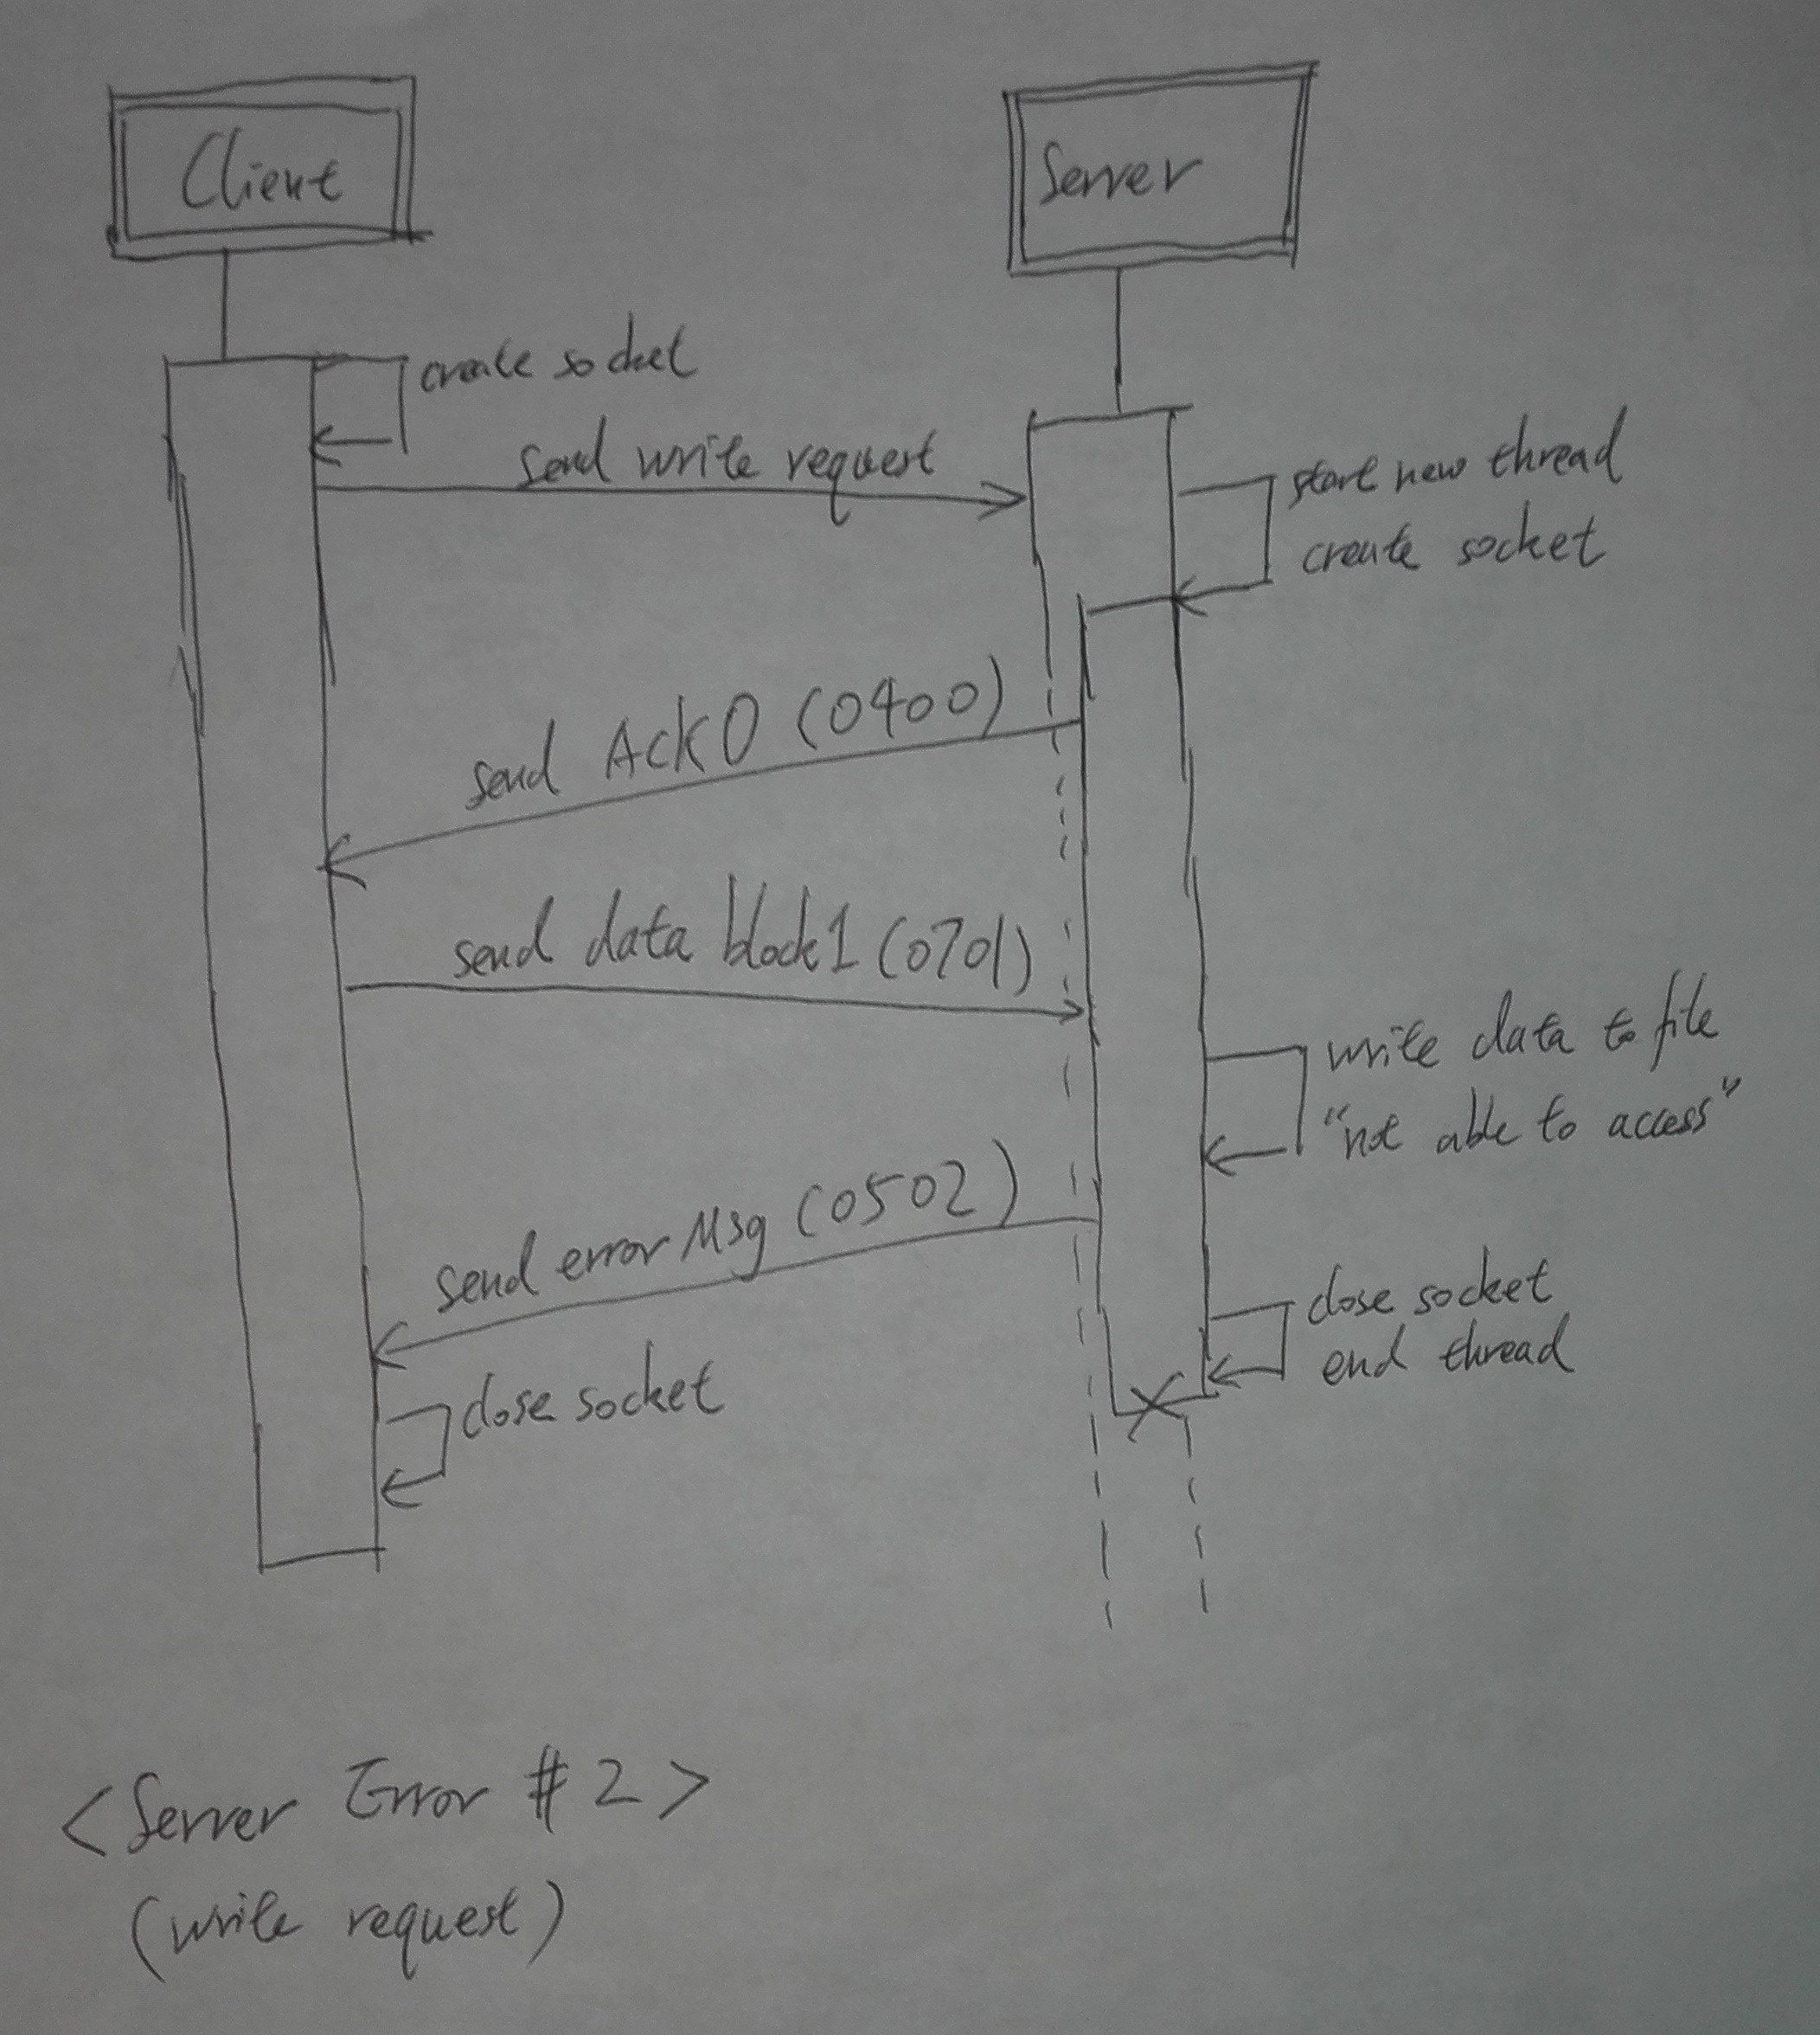 Client
Server
create socket
send write request
start new thread
create socket
send Ack0 (0400)
send data block1 (0701)
write data to file
"not able to access"
send error Msg (0502)
close socket
end thread
close socket
<Server Error #2>
(write request)